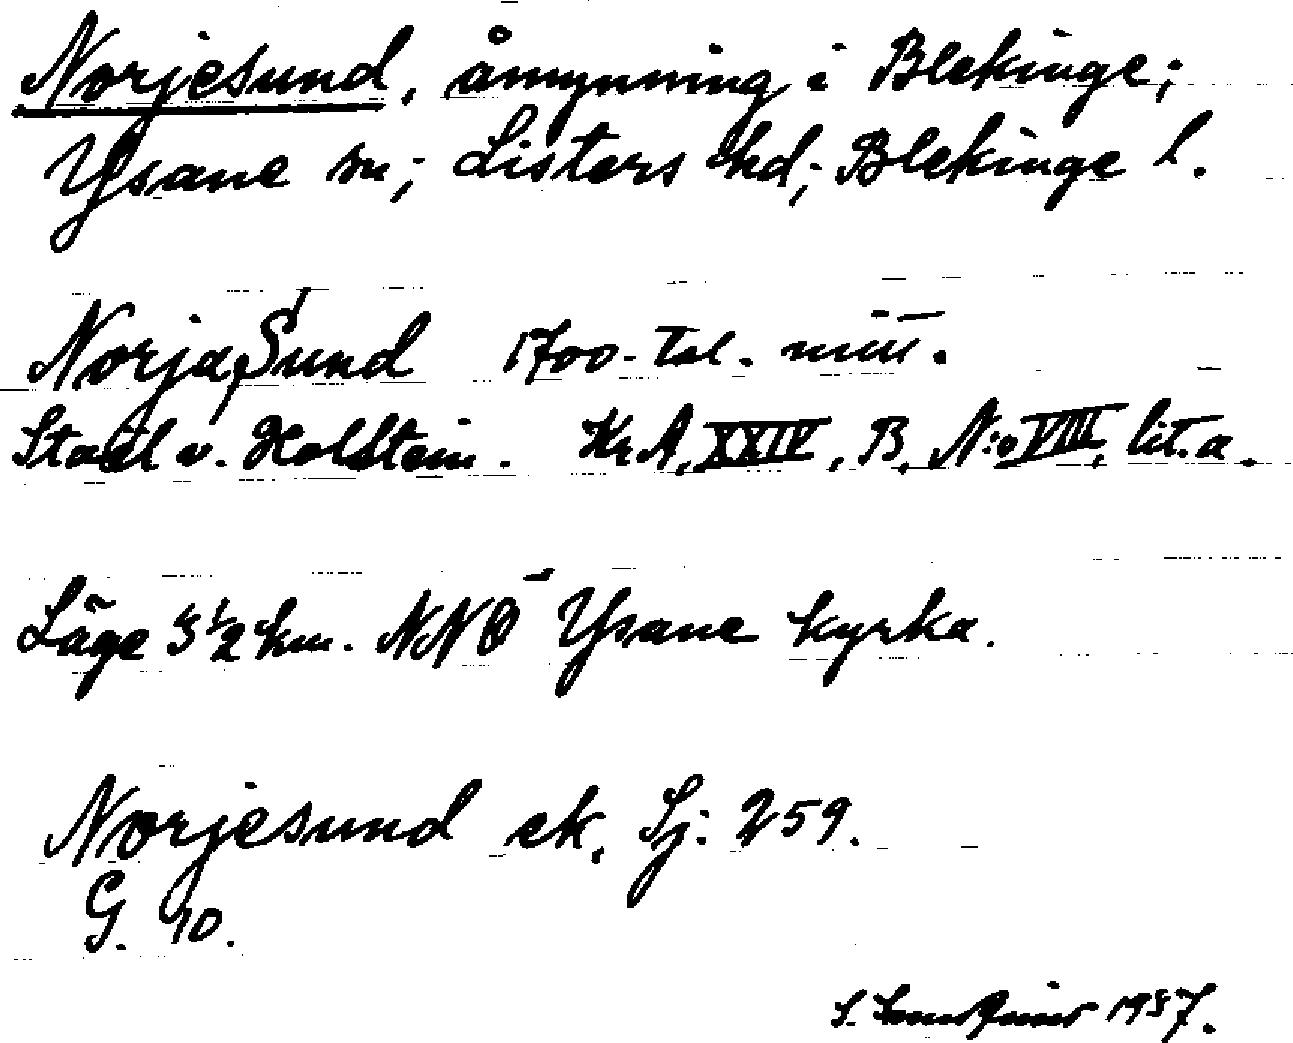 Norjesund, åmynning i Blekinge;
Ysane sn; Listers hd; Blekinge l.
Norja Sund 1700-tal. mitt.
Stael v. Holstein. KrA, XXIV, B, N:o VIII, lit. a.
Läge 3 1/2 km. NNÖ Ysane kyrka.
Norjesund ek. Sj: 259.
G. 10.
S. 1957.